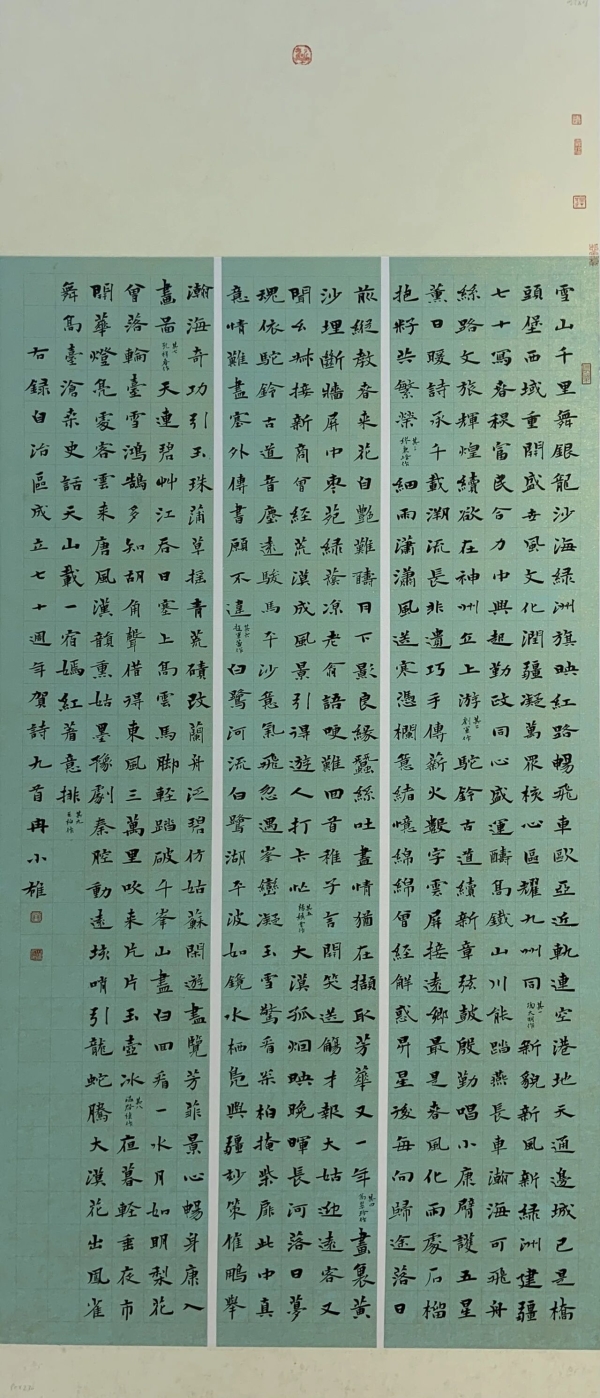 雪山千里舞銀龍沙海綠洲旗映紅路暢飛車歐亞近軌連空港地天通邊城已是橋
頭堡西域重開盛世風文化潤疆凝萬眾核心區耀九州同其一陶大明作新貌新風新綠洲建疆
七十寫春秋富民合力中興起勤政同心盛運疇高鐵山川能踏燕長車瀚海可飛舟
絲路文旅輝煌續欲在神州立上游其二劉軍作駝鈴古道續新章弦鼓殷勤唱小康臂護五星
薰日暖詩承千載溯流長非遺巧手傳薪火數字雲屏接遠鄉最是春風化雨處石榴
抱籽共繁榮其三細雨瀟瀟風送寒憑欄意緒憶綿綿曾經解惑昇星後每向歸途落日
前縱教春來花自艷難疇月下影良緣蠶絲吐盡情猶在擷取芳華又一年其四畫裏黃
沙埋斷牆屏中棗苑綠蔭涼老翁語哽難回首稚子言開笑送觴才報大姑迎遠客又
聞幺妹接新商曾經荒漠成風景引得遊人打卡忙其五大漠孤烟映晚暉長河落日夢
瑰依駝鈴古道音塵遠駿馬平沙意氣飛忽遇峯巒凝玉雪驚看柏掩柴扉此中真
意情難盡塞外傳書願不違其六白鷺河流白鷺湖平波如鏡水栖鳧興疆妙策催鵬舉
瀚海奇功引玉珠蒲草搖青荒磧改蘭舟泛碧仿姑蘇閑遊盡覽芳菲景心暢身康入
畫圖其七天連碧艸江春日塞上高雲馬腳輕踏破千峯山盡白回看一水月如明梨花
曾落輪臺雪鴻鵠多知胡角聲借得東風三萬里吹來片片玉壺冰其八夜暮輕垂夜市
開華燈亮處客雲來唐風漢韻熏姑墨豫劇秦腔動遠垓哨引龍蛇騰大漠花出鳳雀
舞高臺滄桑史話天山載一宿嫣紅著意排其九
右錄自治區成立七十週年賀詩九首冉小雄